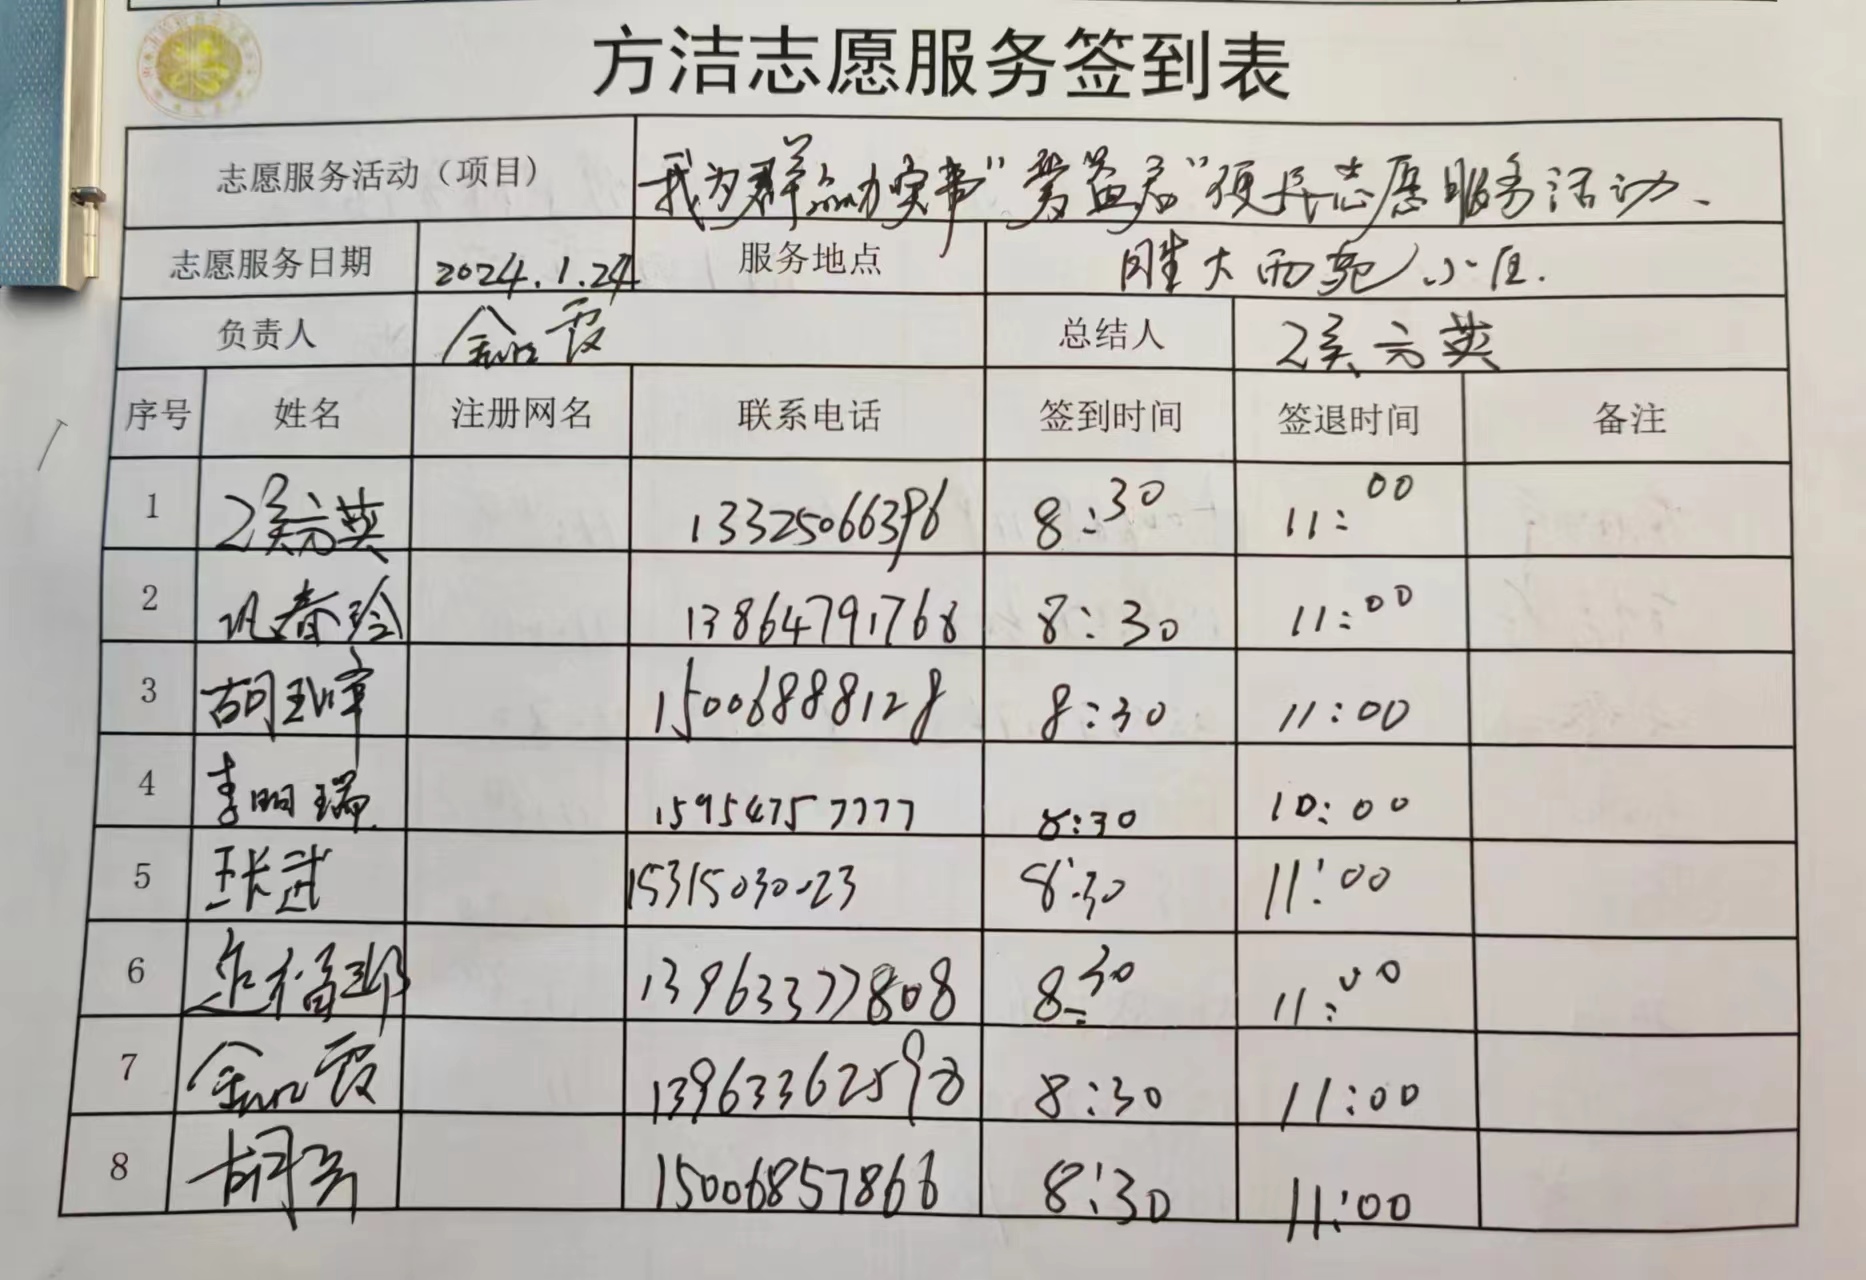 方洁志愿服务签到表
志愿服务活动（项目） 我为群众办实事"普益志"便民志愿服务活动、
志愿服务日期 2024.1.24 服务地点 胜大西苑小区.
负责人 金红霞 总结人 吴云英
序号 姓名 注册网名 联系电话 签到时间 签退时间 备注
1 吴云英 13325066396 8:30 11:00
2 春玲 13864791768 8:30 11:00
3 胡 15006888128 8:30 11:00
4 李明瑞 15954757777 8:30 10:00
5 王长武 15315030023 8:30 11:00
6 13963377808 8:30 11:00
7 金红霞 13963362598 8:30 11:00
8 胡芳 15006857866 8:30 11:00